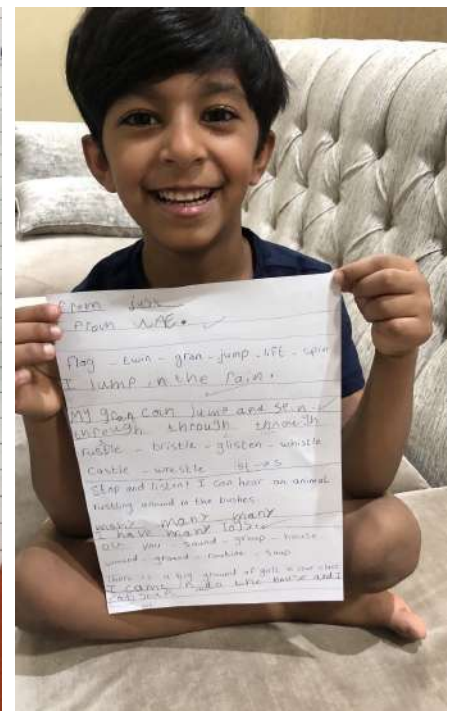 From
From
flag - twin - gran - jump - lift - spin
I Jump in the rain.
My gran can Jump and spin
through through through
rustle - bristle - glisten - whistle
castle - wrestle st-ss
Stop and listen! I can hear an animal
rustling around in the bushes.
many many many
I have many
ou you - sound - group - house
wound - ground - routine - soup
There is a big ground of girls in our class
I came in to the house and I